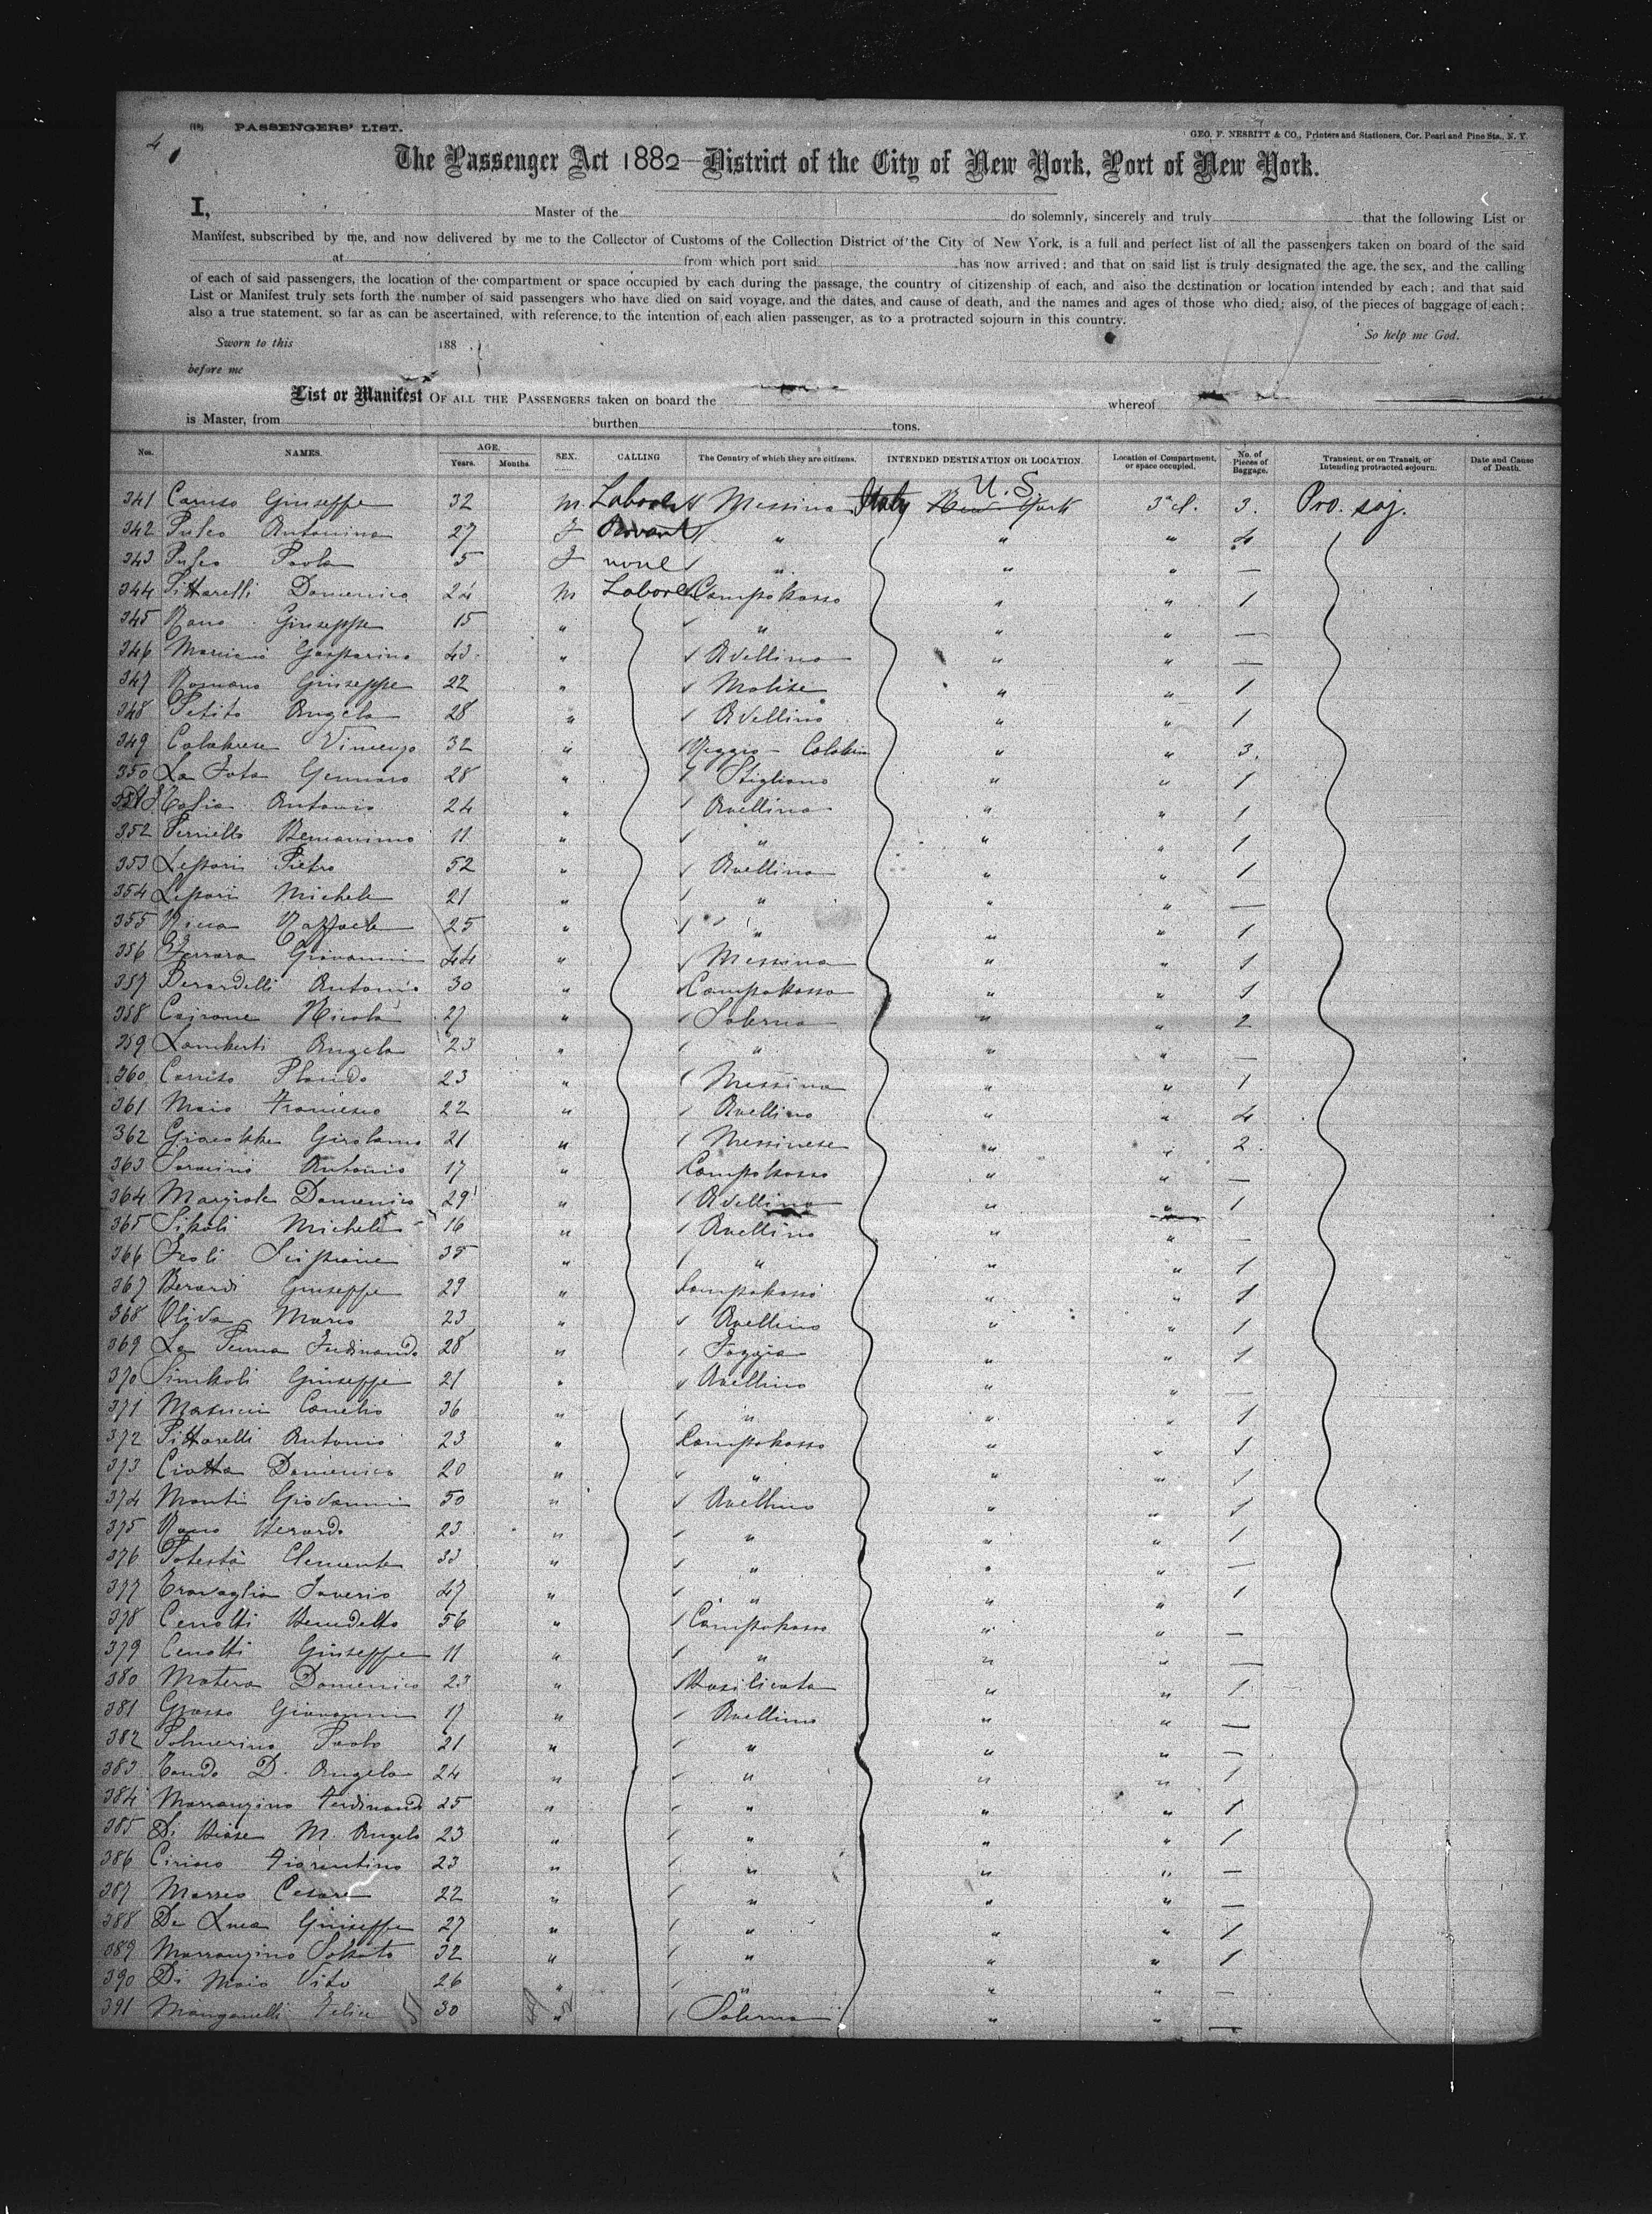 4
(18) PASSENGERS' LIST.
GEO. F. NESBITT & CO., Printers and Stationers, Cor. Pearl and Pine Sts., N. Y.
The Passenger Act 1882—District of the City of New York, Port of New York.
I, Master of the do solemnly, sincerely and truly that the following List or
Manifest, subscribed by me, and now delivered by me to the Collector of Customs of the Collection District of the City of New York, is a full and perfect list of all the passengers taken on board of the said
at from which port said has now arrived; and that on said list is truly designated the age, the sex, and the calling
of each of said passengers, the location of the compartment or space occupied by each during the passage, the country of citizenship of each, and also the destination or location intended by each; and that said
List or Manifest truly sets forth the number of said passengers who have died on said voyage, and the dates, and cause of death, and the names and ages of those who died; also, of the pieces of baggage of each;
also a true statement, so far as can be ascertained, with reference to the intention of each alien passenger, as to a protracted sojourn in this country.
So help me God.
Sworn to this 188
before me
List or Manifest OF ALL THE PASSENGERS taken on board the whereof
is Master, from burthen tons.
Nos. NAMES. AGE. Years. Months. SEX. CALLING The Country of which they are citizens. INTENDED DESTINATION OR LOCATION. Location of Compartment, or space occupied. No. of Pieces of Baggage. Transient, or on Transit, or Intending protracted sojourn. Date and Cause of Death.
341 Caruso Giuseppe 32 m Laborer Messina Italy New York U. S. 3 cl. 3. Pro. soj.
342 Puleo Antonina 27 f Servant " " " 4
343 Puleo Paola 5 f none " " " —
344 Pittarelli Domenico 24 m Laborer Campobasso " " 1
345 Giuseppe 15 " " " " —
346 Gasparino 43 " Avellino " " —
347 Romano Giuseppe 22 " Molise " " 1
348 Petito Angelo 28 " Avellino " " 1
349 Calabrese Vincenzo 32 " Reggio - Calabria " " 3.
350 La Gennaro 28 " Stigliano " " 1
351 Antonio 24 " Avellino " " 1
352 Perriello 11 " " " " 1
353 Lepori Pietro 52 " Avellino " " 1
354 Lepori Michele 21 " " " " —
355 Ricca Raffaele 25 " " " " 1
356 Ferrara Giovanni 44 " Messina " " 1
357 Berardelli Antonio 30 " Campobasso " " 1
358 Cairone Nicola 27 " Salerno " " 2
359 Lamberti Angelo 23 " " " " —
360 Placido 23 " Messina " " 1
361 Maio Francesco 22 " Avellino " " 4
362 Girolamo 21 " Messinese " " 2.
363 Antonio 17 " Campobasso " " —
364 Domenico 29 " Avellino " " 1
365 Michele 16 " Avellino " " —
366 Scipione 35 " " " " 1
367 Berardi Giuseppe 29 " Campobasso " " 1
368 Oliva Mario 23 " Avellino " " 1
369 La Penna Ferdinando 28 " Foggia " " 1
370 Giuseppe 21 " Avellino " " —
371 36 " " " " 1
372 Pittarelli Antonio 23 " Campobasso " " 1
373 Ciotta Domenico 20 " " " " 1
374 Monti Giovanni 50 " Avellino " " 1
375 23 " " " " 1
376 Potestà Clemente 33 " " " " —
377 Travaglia Saverio 47 " " " " 1
378 Cerrotti Benedetto 56 " Campobasso " " —
379 Cerrotti Giuseppe 11 " " " " —
380 Matera Domenico 23 " Basilicata " " 1
381 Grasso Giovanni 17 " Avellino " " —
382 Paolo 21 " " " " —
383 D. Angelo 24 " " " " 1
384 Marranzino Ferdinando 25 " " " " 1
385 Di Biase M. Angelo 23 " " " " 1
386 Ciriaco Fiorentino 23 " " " " —
387 Cesare 22 " " " " —
388 De Luca Giuseppe 27 " " " " 1
389 Marranzino Sabato 32 " " " " 1
390 Di Maio Vito 26 " " " " —
391 Manganelli Felice 30 " Salerno " " —